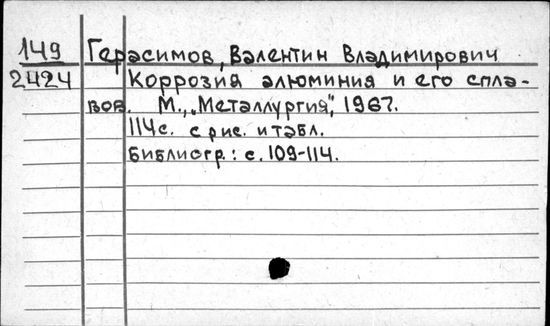 149 Герасимов, Валентин Владимирович
2424 Коррозия алюминия и его спла-
вов. М., "Металлургия", 1967.
114с. с рис. и табл.
Библиогр.: с. 109-114.